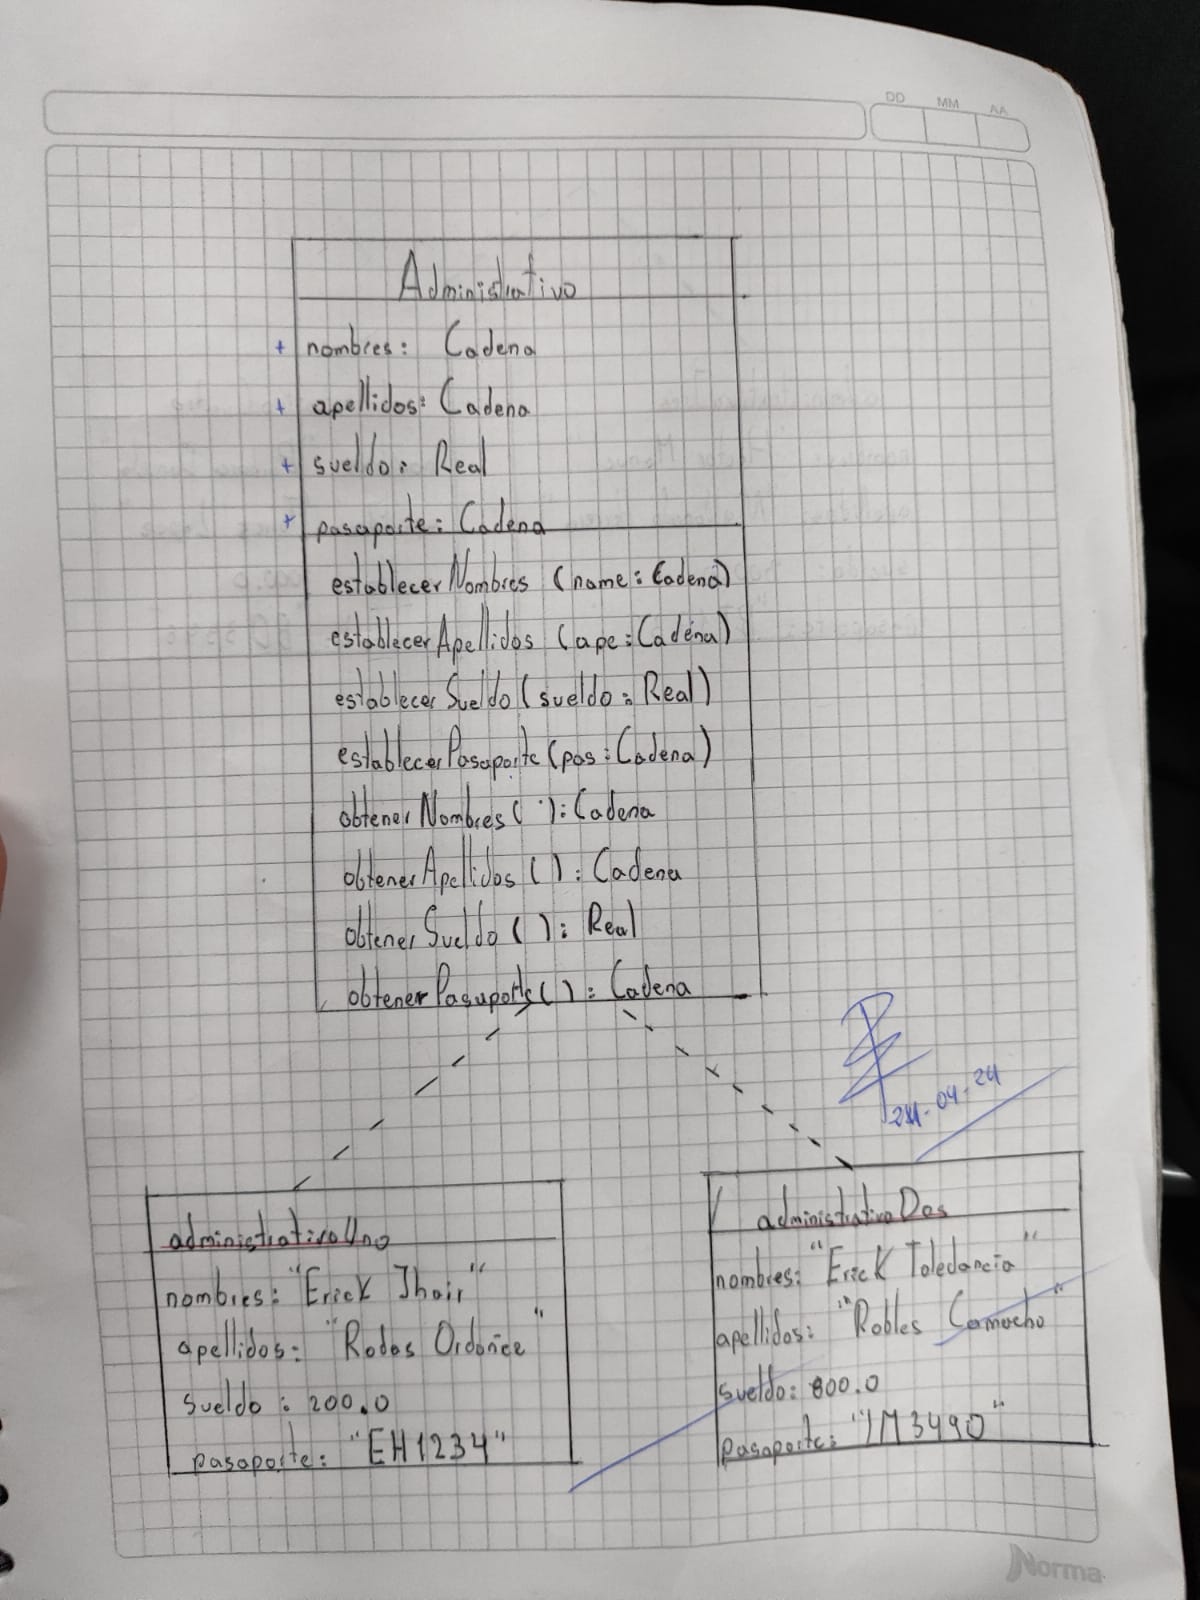 DD MM AA
Administrativo
+ nombres: Cadena
+ apellidos: Cadena
+ sueldo: Real
+ pasaporte: Cadena
establecerNombres (name: Cadena)
establecerApellidos (ape: Cadena)
establecerSueldo (sueldo: Real)
establecerPasaporte (pas: Cadena)
obtenerNombres( ): Cadena
obtenerApellidos ( ): Cadena
obtenerSueldo ( ): Real
obtenerPasaporte( ): Cadena
24-04-24
administrativoUno
nombres: "Erick Jhair"
apellidos: "Rodas Ordoñce"
sueldo: 200.0
pasaporte: "EH1234"
administrativoDos
nombres: "Erick Toledancia"
apellidos: "Robles Camacho"
sueldo: 800.0
pasaporte: "IM3490"
Norma